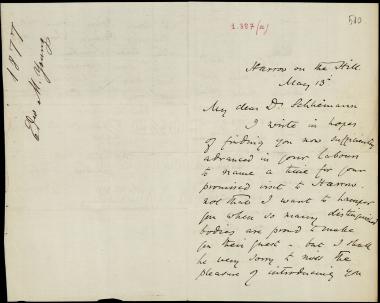 1877
Edw. M. Young
1.387(a)
510
Harrow on the Hill
May 13
My dear Dr. Schliemann
I write in hopes
of finding you now sufficiently
advanced in your labours
to name a time for your
promised visit to Harrow.
not that I want to hamper
you when so many distinguished
bodies are proud to make
you their guest – but I shall
be very sorry to miss the
pleasure of introducing you